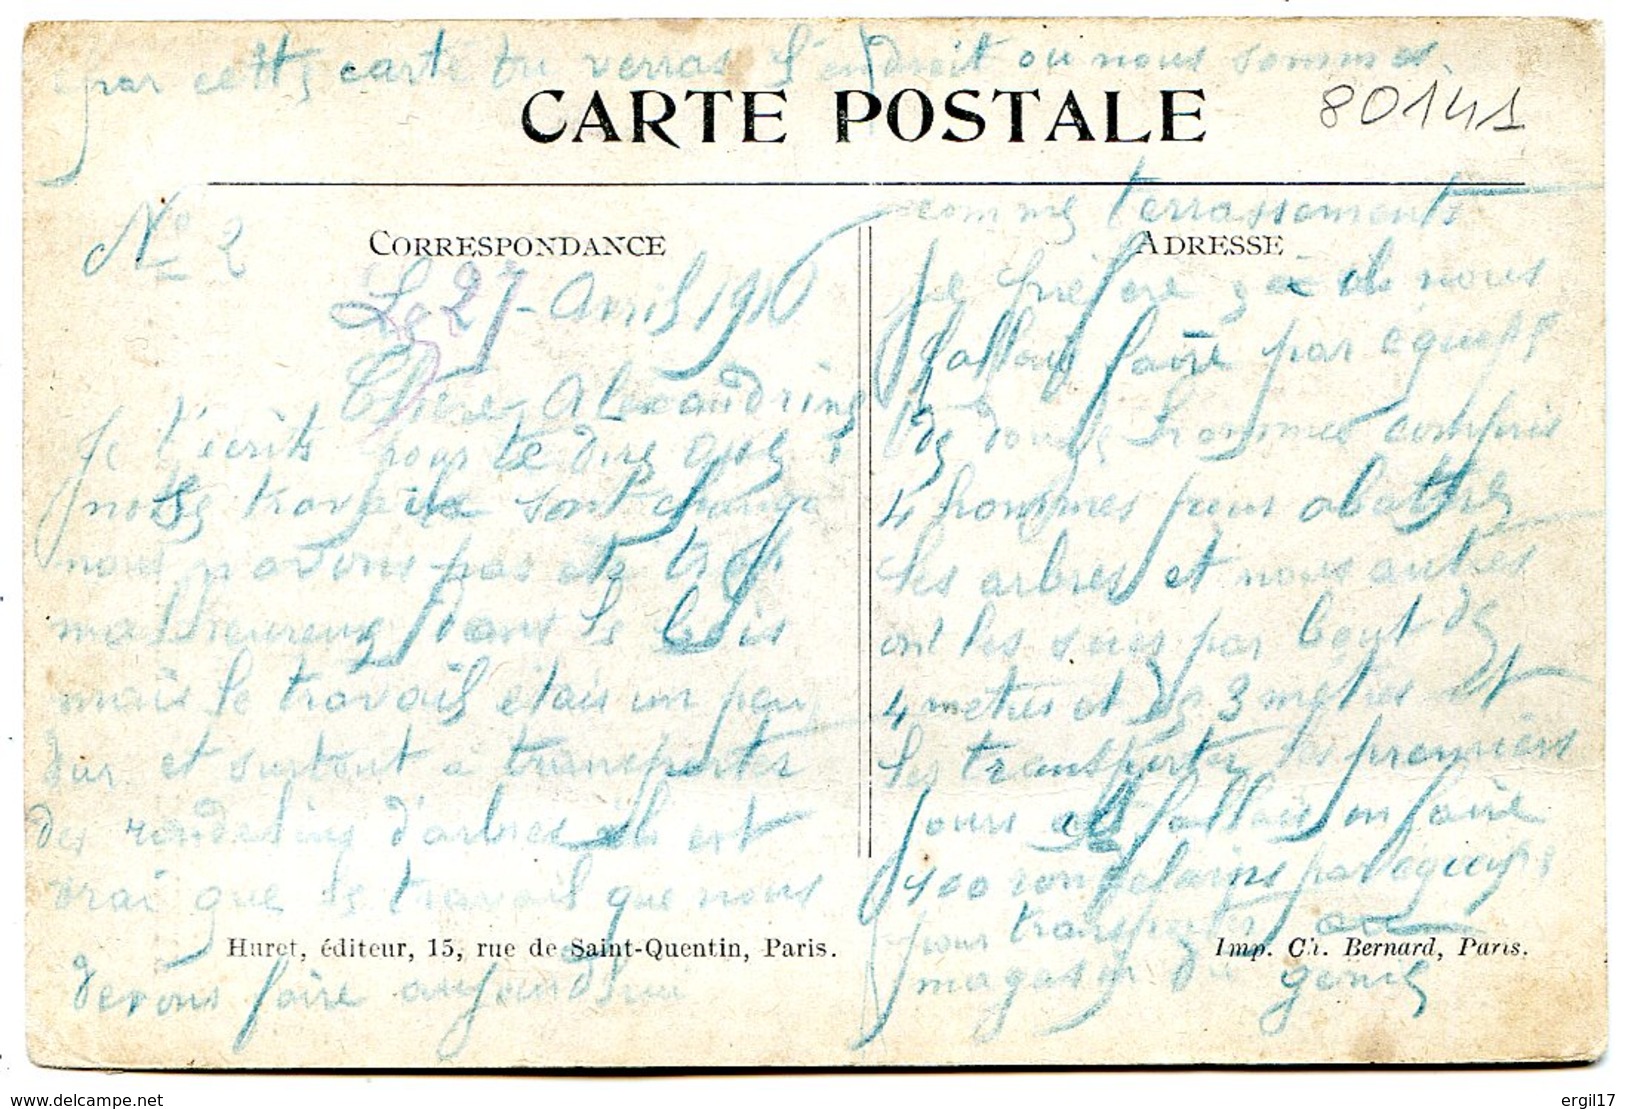 par cette carte tu verras l'endroit ou nous sommes
CARTE POSTALE
80141
No 2
CORRESPONDANCE
Le 27 - Avril 1916
Chère Alexandrine
Je t'ecrits pour te dire que
nos travaux sont changé
nous n'avons pas ete trop
malheureux dans le bois
mais le travail etais un peu
dur et surtout a transporter
des rondelins d'arbres il est
vrai que le travail que nous
devons faire aujourd'hui
Huret, éditeur, 15, rue de Saint-Quentin, Paris.
comme terrassements
ADRESSE
je préfère nous
fallais faire par equipe
de douze hommes compris
4 hommes pour abattre
les arbres et nous autres
ont les scies par bout de
4 metres et de 3 metres et
les transporter les premiers
jours fallais en faire
400 rondelains par equipe
pour transporter au
magasin du genie
Imp. Ch. Bernard, Paris.
delcampe.net
ergil17